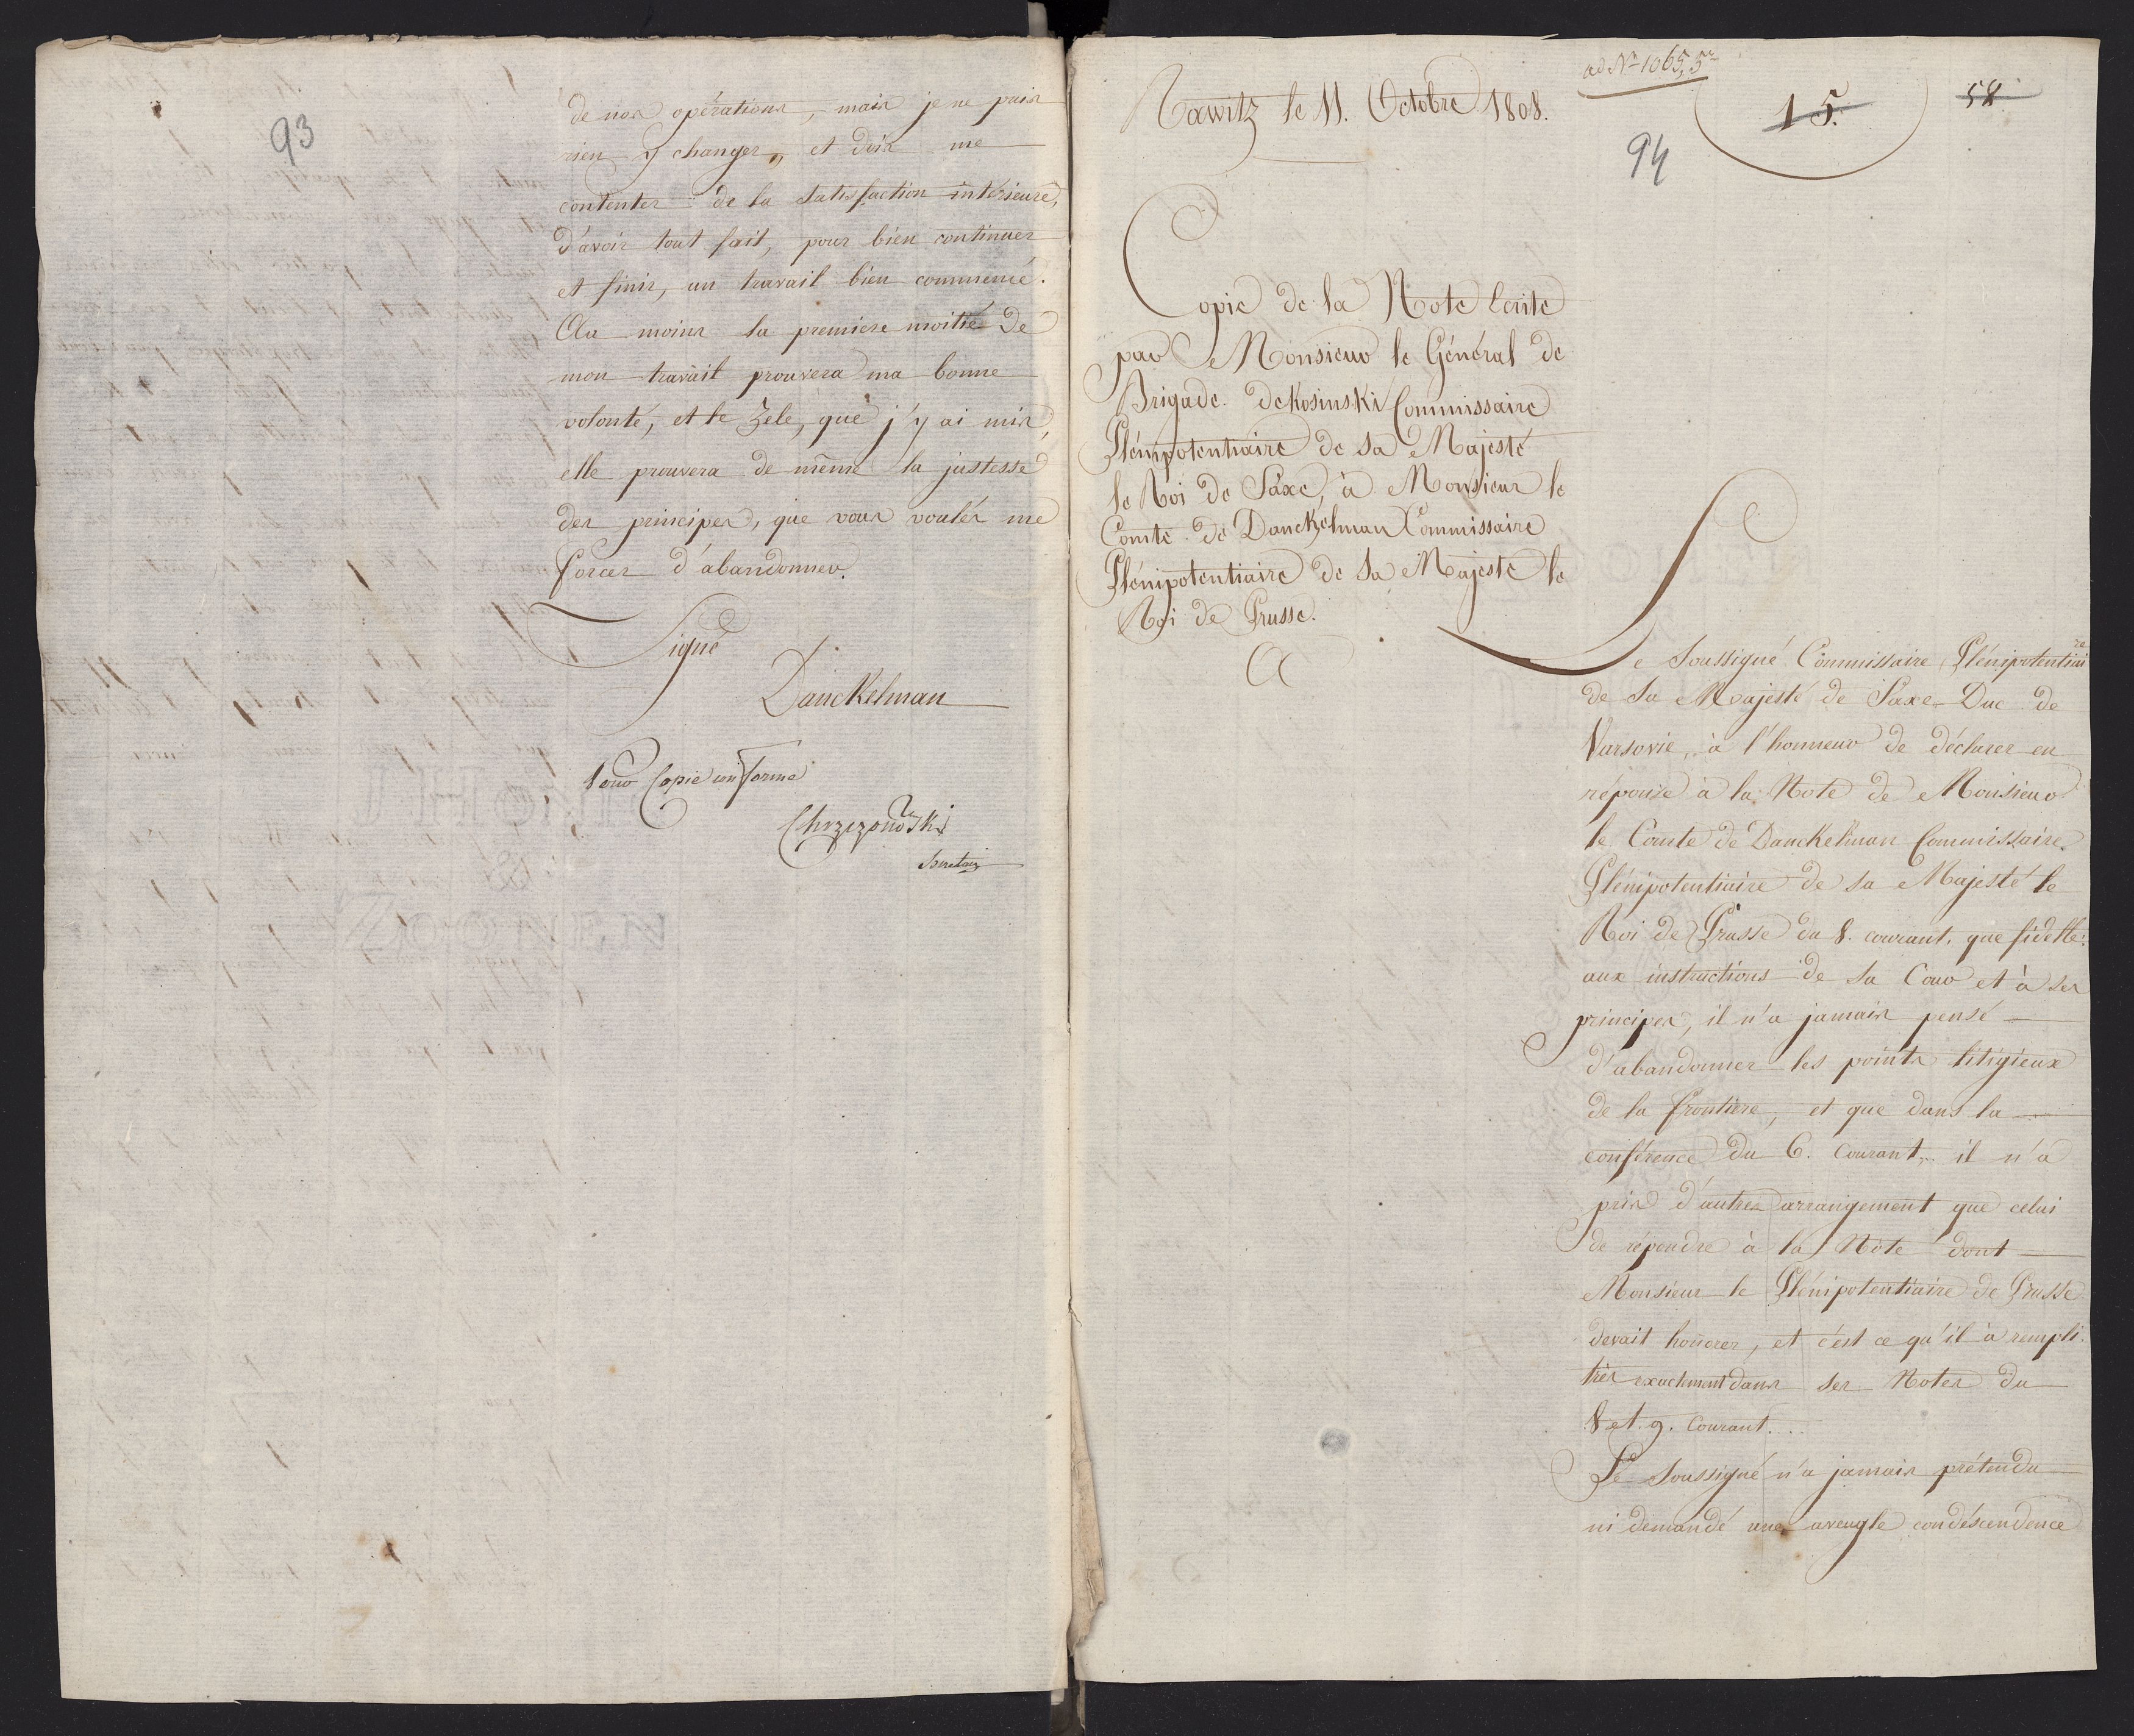 93
de nos opérations, mais je ne puis
rien y changer, et dois me
contenter de la satisfaction intérieure,
d'avoir tout fait, pour bien continuer
et finir, un travail bien commencé.
Au moins la premiere moitié de
mon travail prouvera ma bonne
volonté, et le Zele, que j'y ai mis,
elle prouvera de même la justesse
des principes, que vous voulés me
forcer d'abandonner.
Signé
Danckelman
Pour Copie uniforme
Chrzczonowski
Secretaire
ad Nr 1065,5
Rawitz le 11. Octobre 1808.
15.
58
94
Copie de la Note Ecrite
par Monsieur le Général de
Brigade de Kosinski Commissaire
Plénipotentiaire de sa Majesté
le Roi de Saxe, à Monsieur le
Comte de Danckelman Commissaire
Plénipotentiaire de sa Majesté le
Roi de Prusse.
Le Soussigné Commissaire Plénipotentiaire
de Sa Majesté de Saxe Duc de
Varsovie, à l'honneur de déclarer en
réponse à la Note de Monsieur
le Comte de Danckelman Commissaire
Plénipotentiaire de sa Majesté le
Roi de Prusse du 8. courant, que fidelle
aux instructions de sa Cour et à ses
principes, il n'a jamais pensé
d'abandonner les points litigieux
de la frontiere, et que dans la
conférence du 6. Courant, il n'a
pris d'autres arrangement que celui
de répondre à la Note dont
Monsieur le Plénipotentiaire de Prusse
devait honorer, et c'est ce qu'il à rempli
très exactement dans ses Notes du
8 et 9. Courant.
Le Soussigné n'a jamais prétendu
ni demandé une aveugle condéscendence